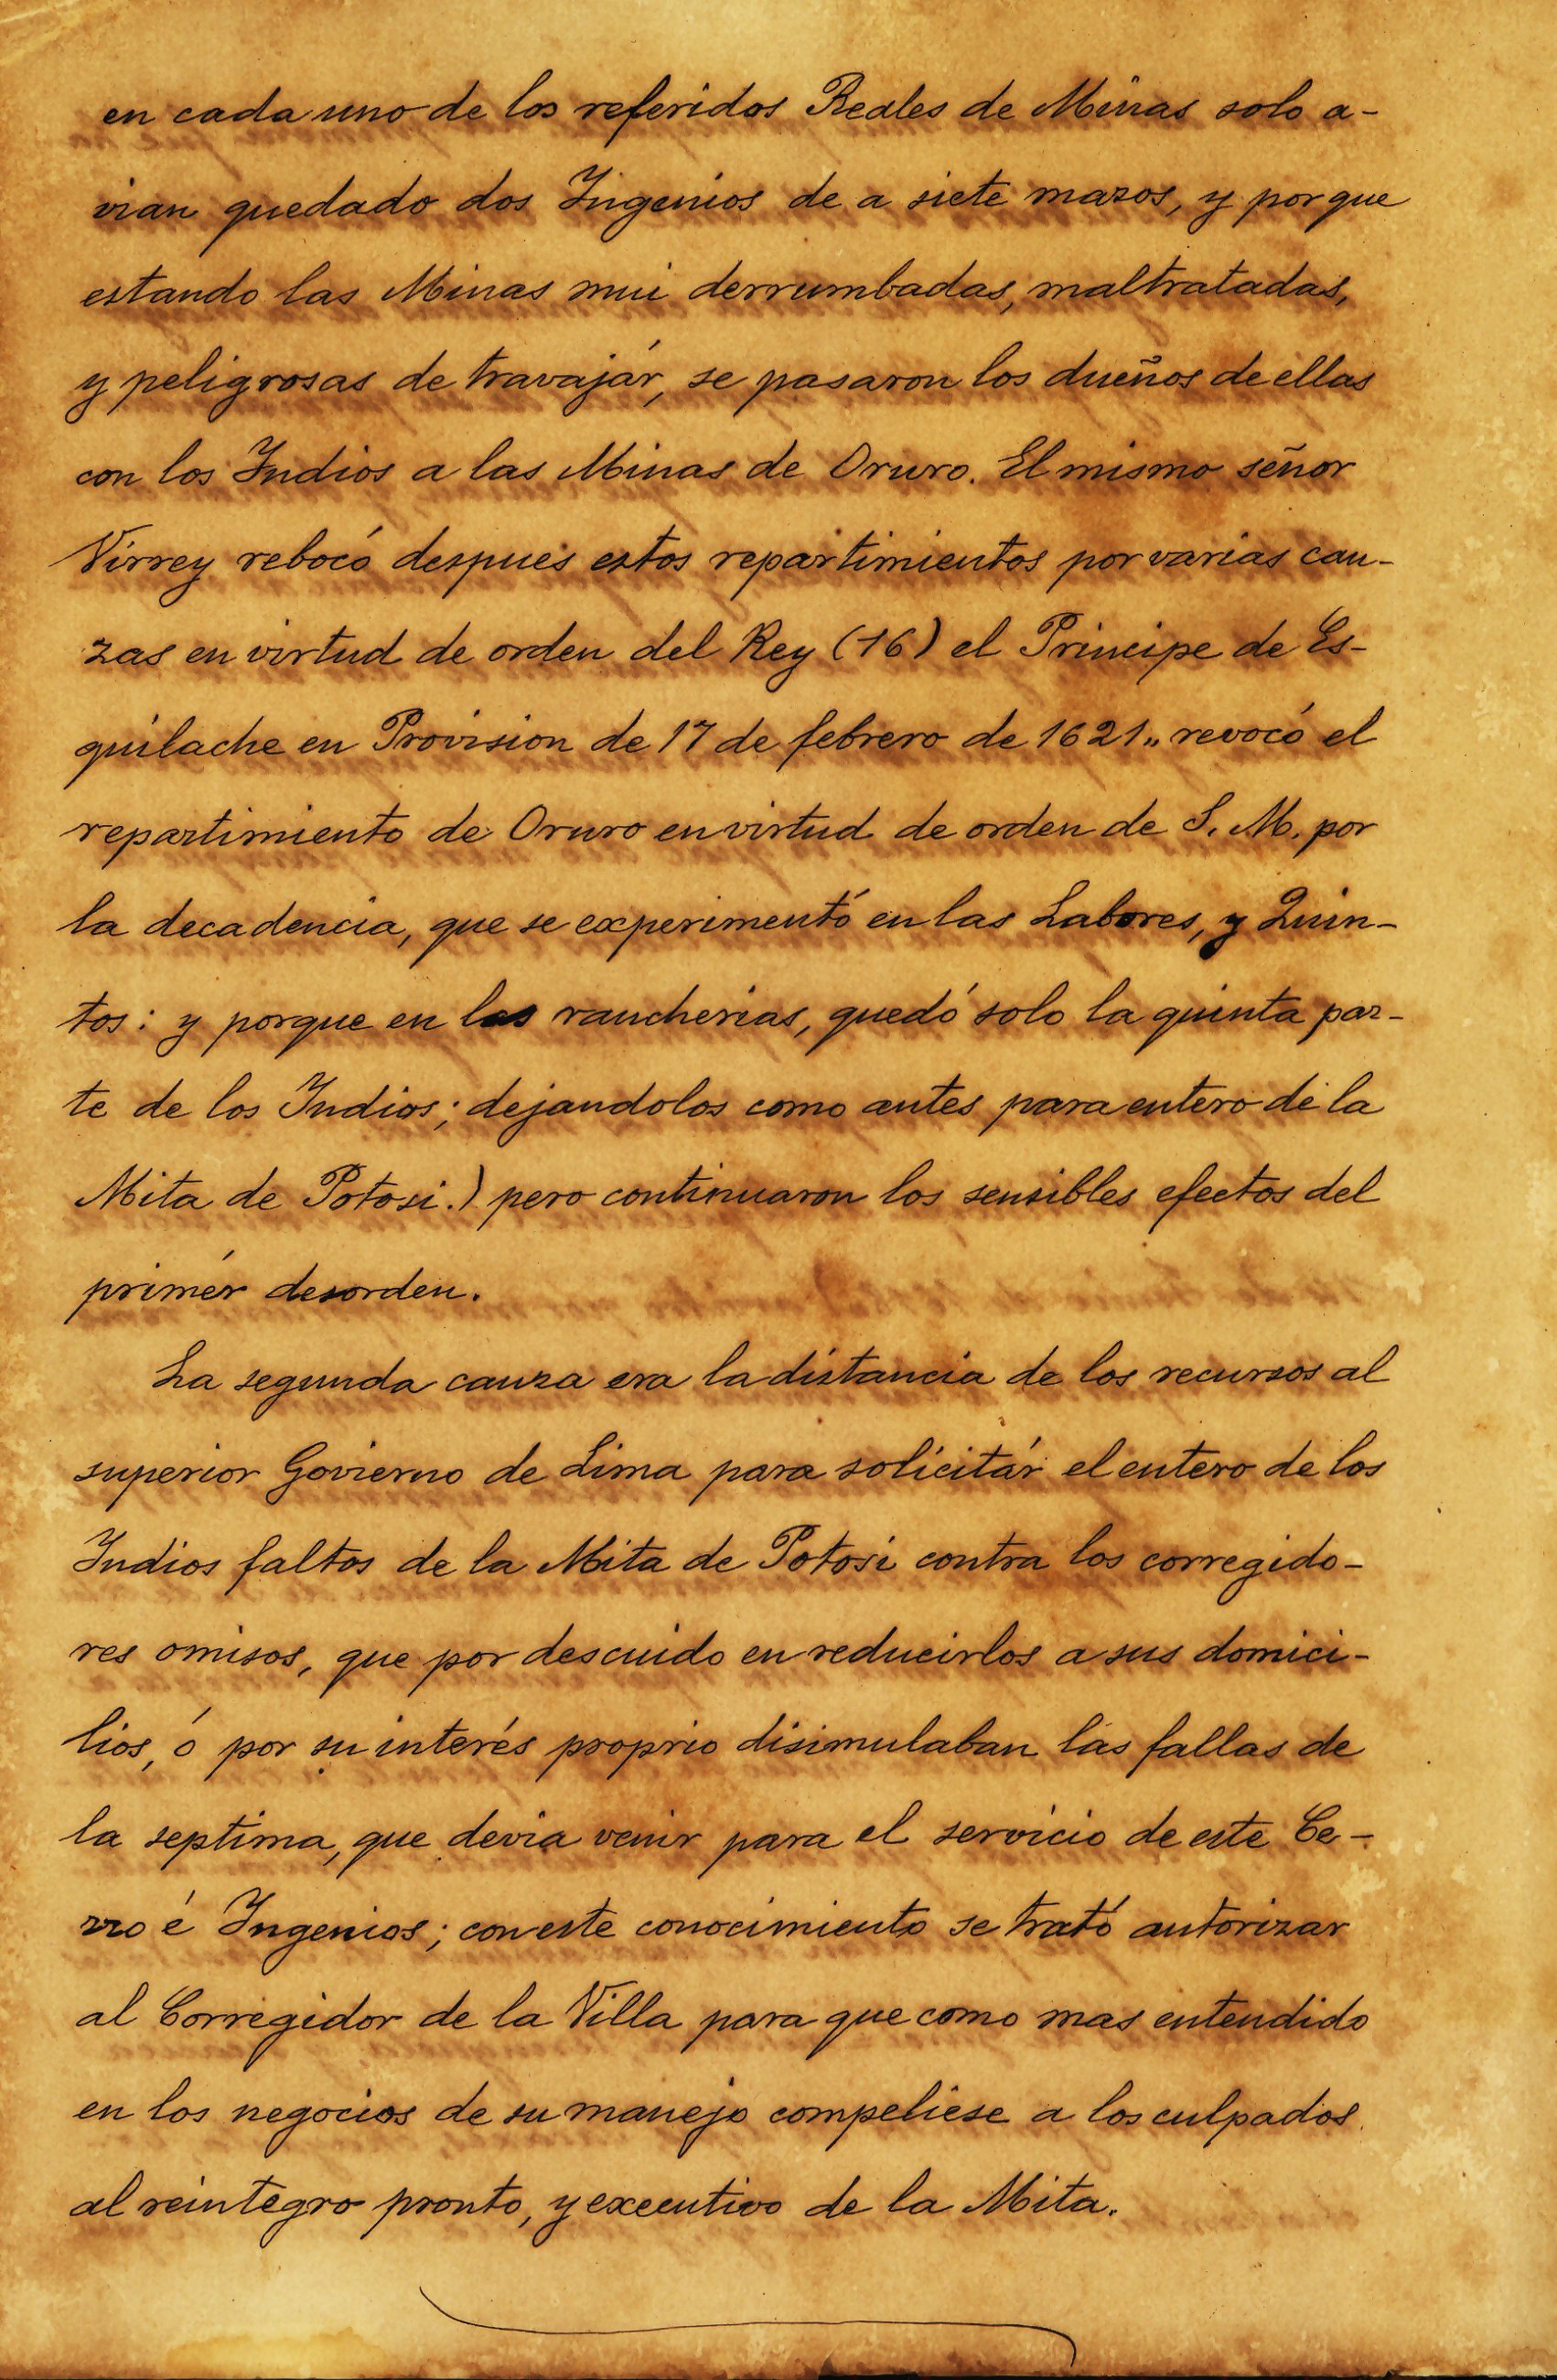 en cada uno de los referidos Reales de Minas solo a-
vian quedado dos Ingenios de a siete mazos, y porque
estando las Minas mui derrumbadas, maltratadas,
y peligrosas de travajár, se pasaron los dueños de ellas
con los Indios a las Minas de Oruro. El mismo señor
Virrey rebocó despues estos repartimientos por varias cau-
zas en virtud de orden del Rey (16) el Principe de Es-
quilache en Provision de 17 de febrero de 1621,, revocó el
repartimiento de Oruro en virtud de orden de S. M. por
la decadencia, que se experimentó en las Labores, y Quin-
tos: y porque en las rancherias, quedó solo la quinta par-
te de los Indios; dejandolos como antes para entero de la
Mita de Potosi.) pero continuaron los sensibles efectos del
primér desorden.
La segunda cauza era la distancia de los recursos al
superior Govierno de Lima para solicitár el entero de los
Indios faltos de la Mita de Potosi contra los corregido-
res omisos, que por descuido en reducirlos a sus domici-
lios, ó por su interés proprio disimulaban las fallas de
la septima, que devia venir para el servicio de este Ce-
rro é Ingenios; con este conocimiento se trató autorizar
al Corregidor de la Villa para que como mas entendido
en los negocios de su manejo compeliese a los culpados
al reintegro pronto, y executivo de la Mita.